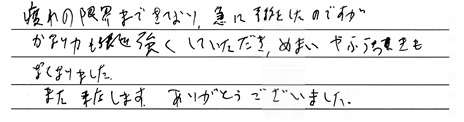 疲れの限界まできており、急に予約をしたのですが
かなり力も強くしていただき、めまいやふらつきも
なくなりました。
また来店します。ありがとうございました。